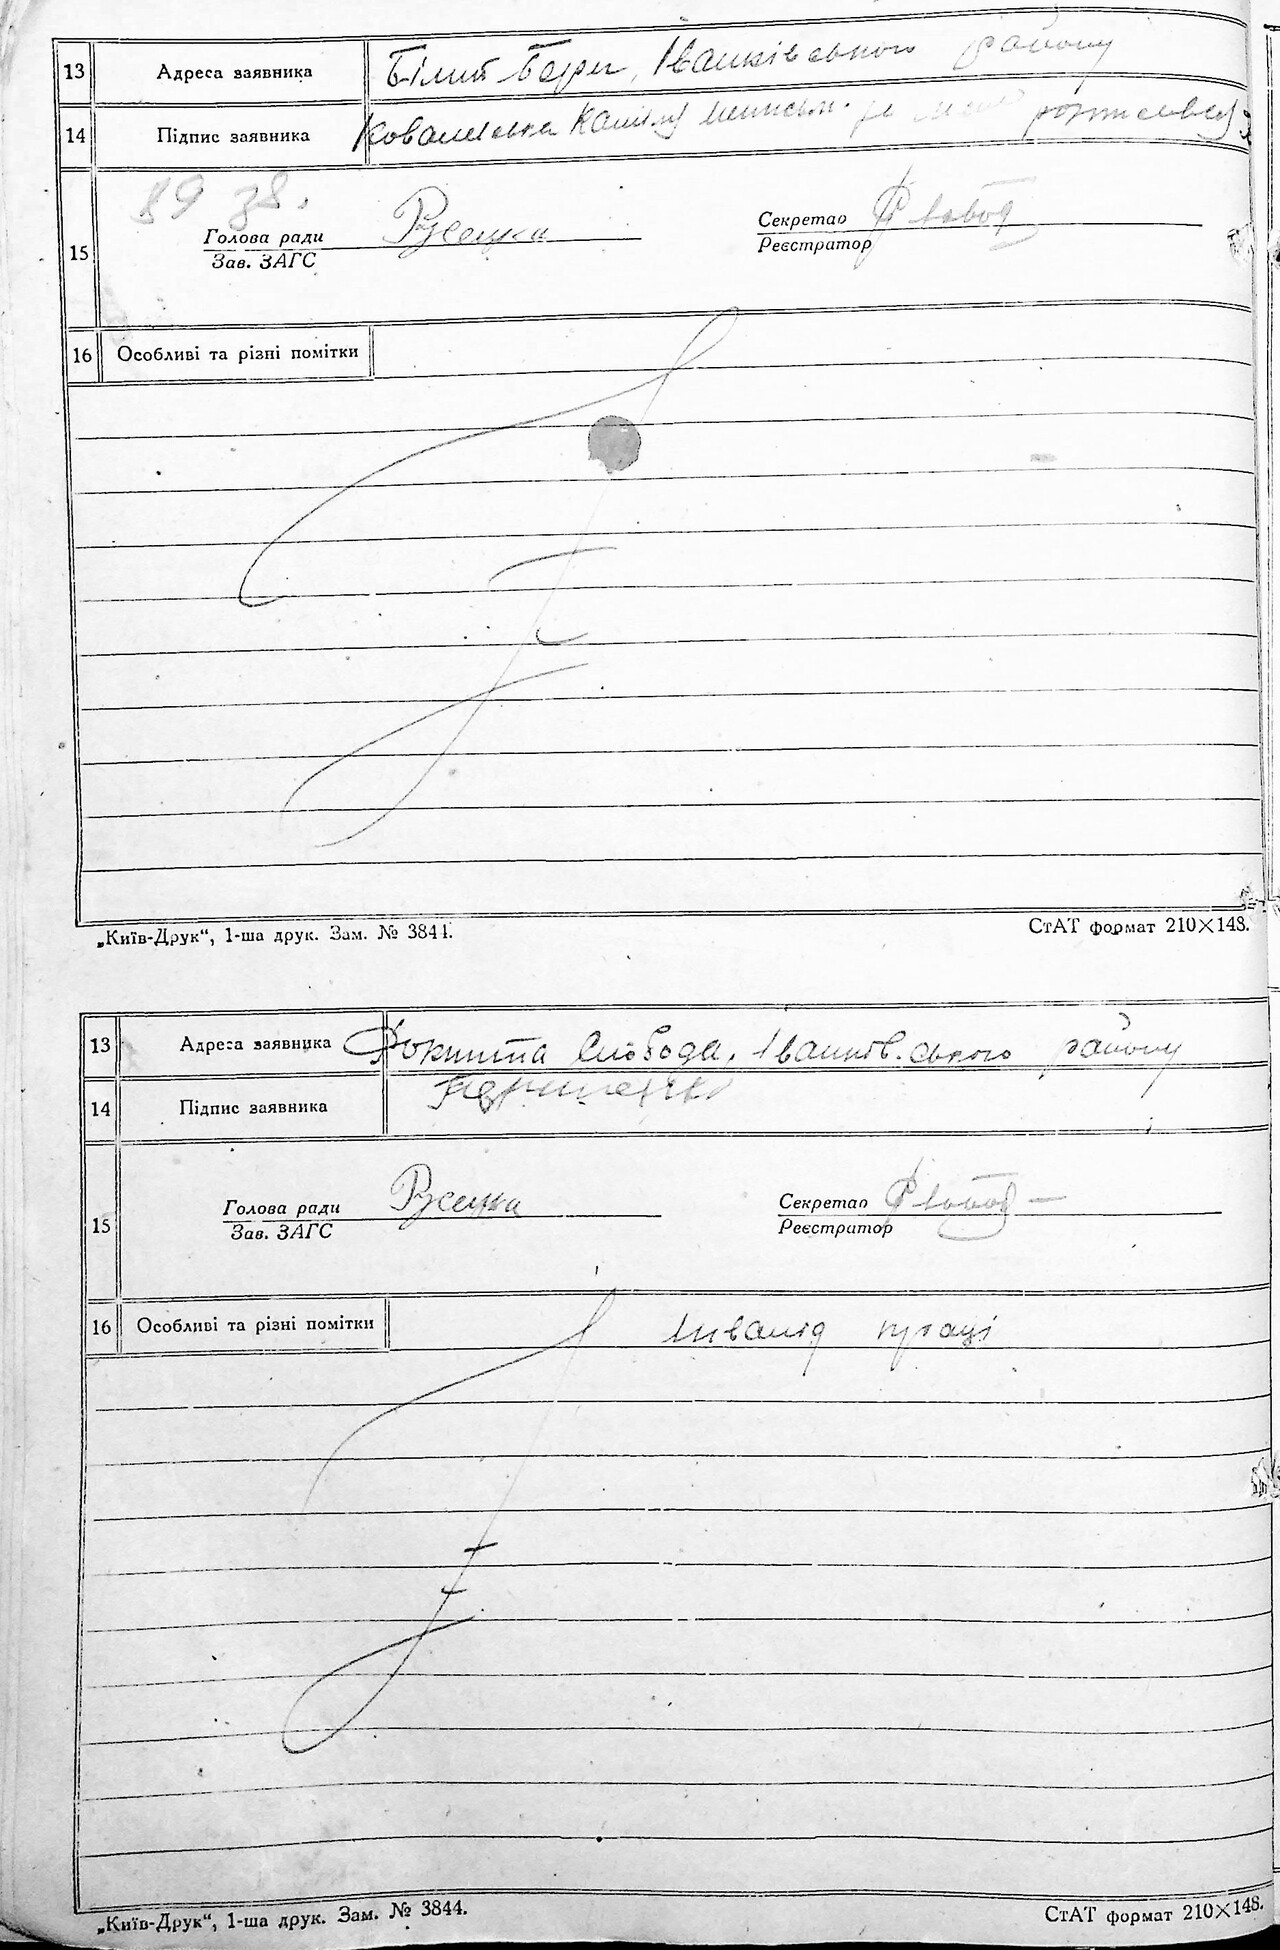 13 Адреса заявника Білий Берег, Іванківського району
14 Підпис заявника розписався
89 38.
15 Голова ради Русецка Секретар
Зав. ЗАГС Реєстратор
16 Особливі та різні помітки
„Київ-Друк“, 1-ша друк. Зам. № 3844. СтАТ формат 210×148.
13 Адреса заявника Слобода, Іванків.ського району
14 Підпис заявника
15 Голова ради Русецка Секретар
Зав. ЗАГС Реєстратор
16 Особливі та різні помітки Інвалід праці
„Київ-Друк“, 1-ша друк. Зам. № 3844. СтАТ формат 210×148.